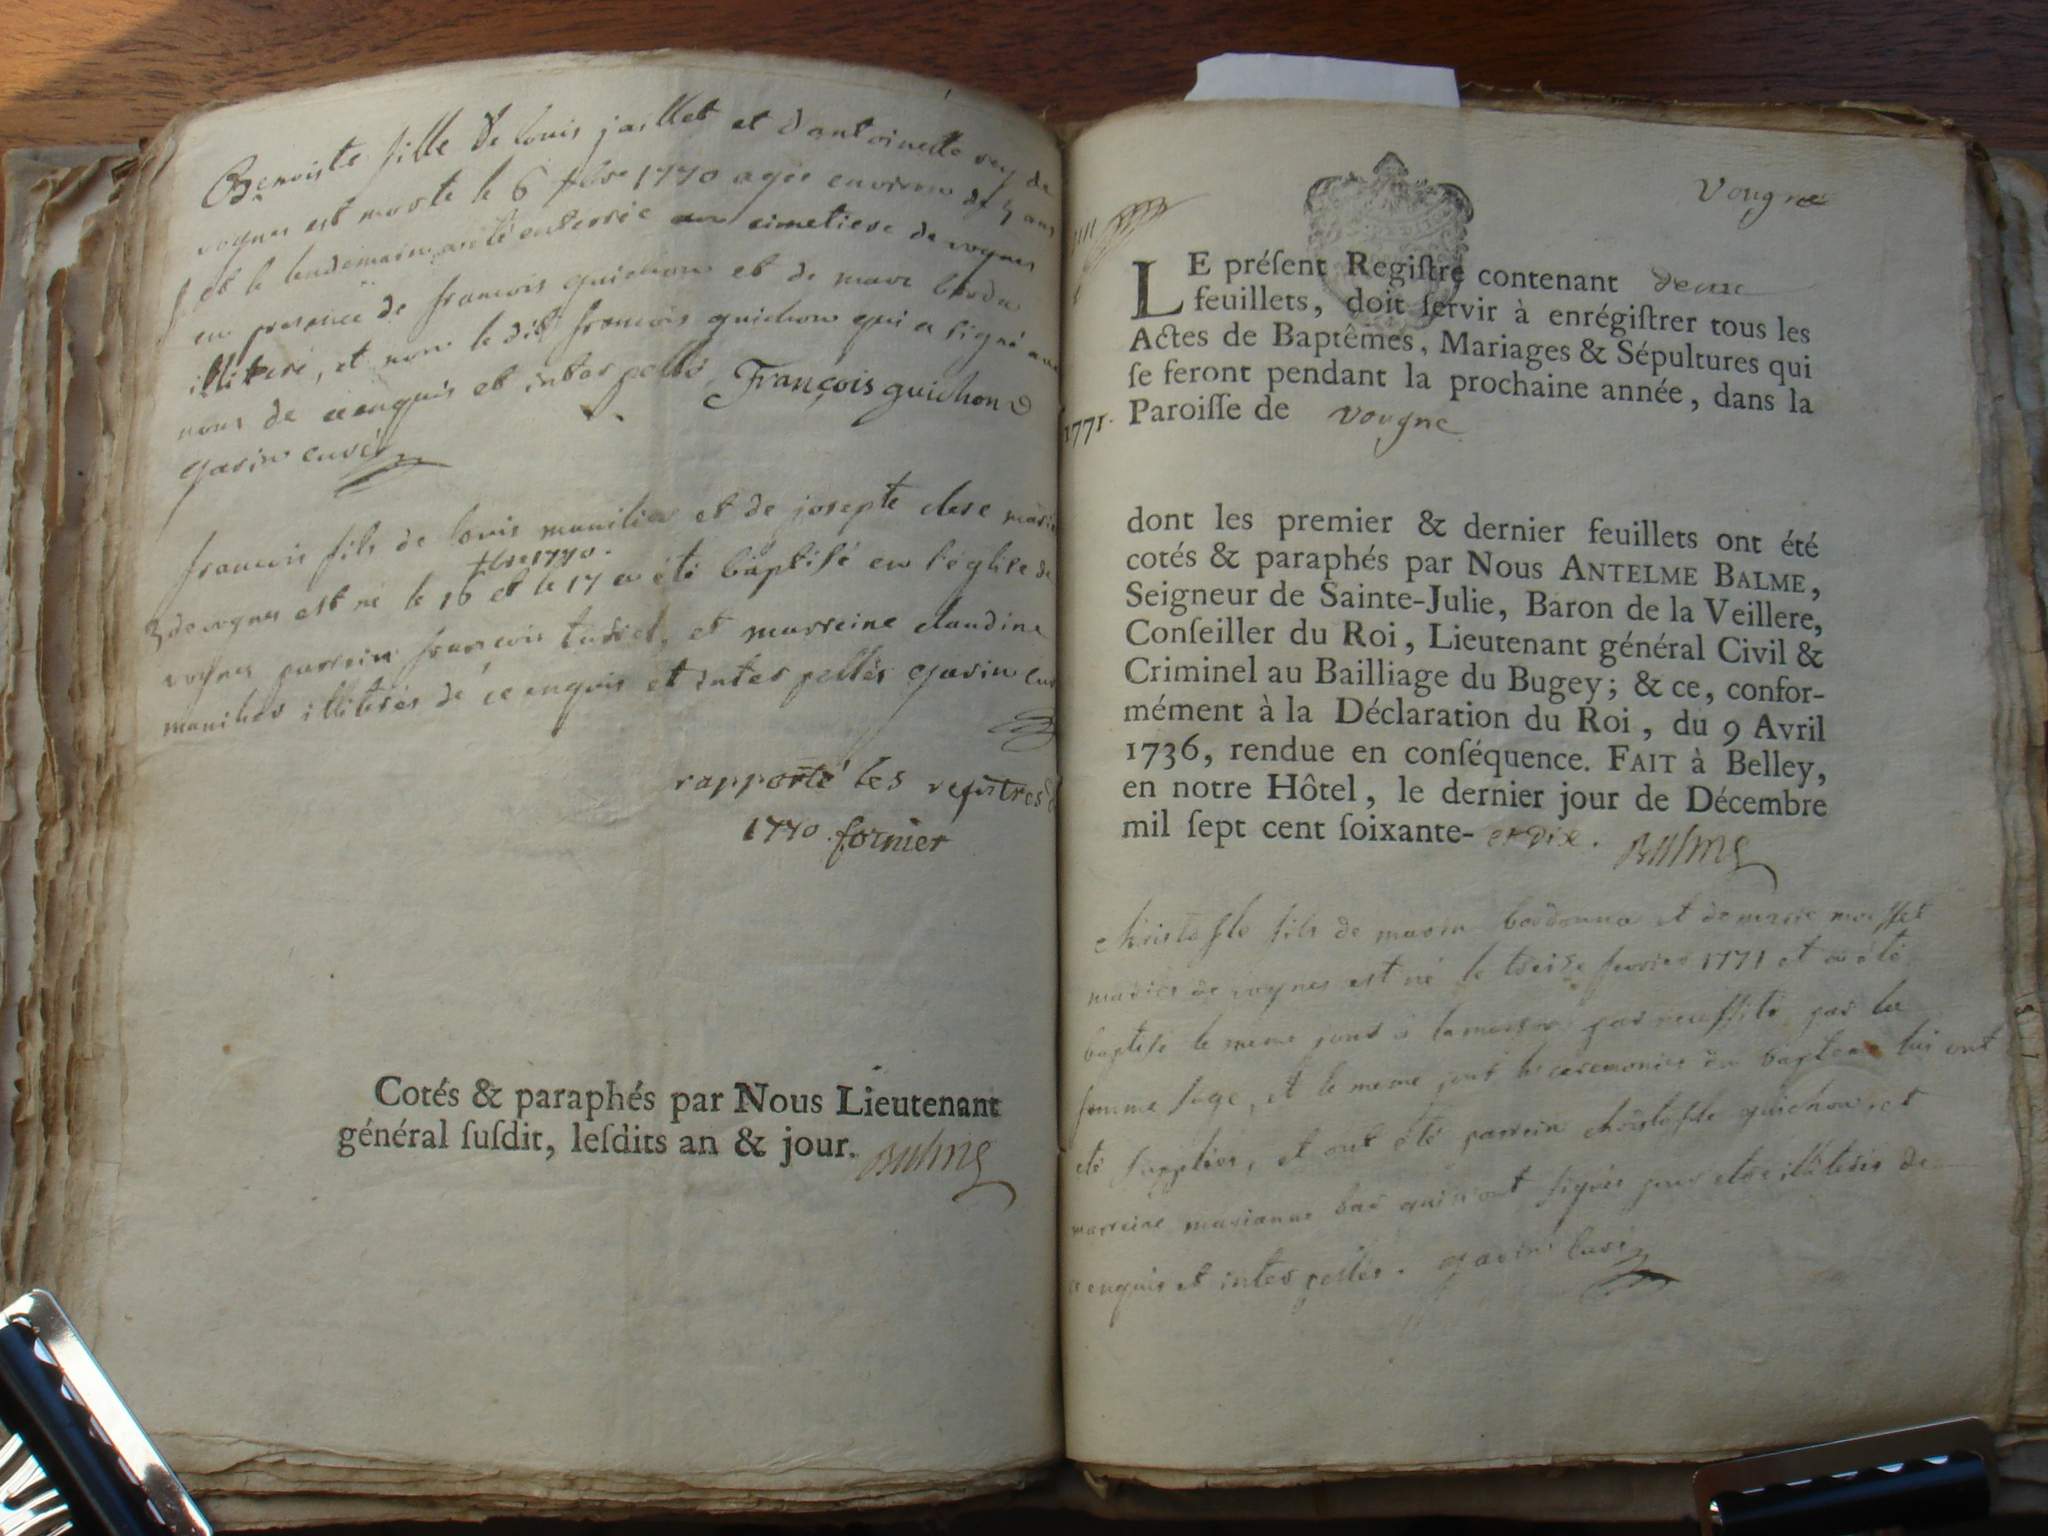 Benoiste fille de louis jaillet et d'antoinette rey de
vognes est morte le 6 xbre 1770 agée environ de 5 ans
et le lendemain a eté enterrée au cimetiere de vognes
en presence de francois guichon et de marc
illiteré, et non le dit francois guichon qui a signé avec
nous de ce enquis et interpellé François guichon
garin curé
francois fils de louis manilier et de josepte clerc mariés
xbre 1770.
3 de vognes est né le 16 et le 17 a été baptisé en l'église de
vognes parrein francois et marreine claudine
manilier illiterés de ce enquis et interpellés garin curé
rapporté les regitres de
1770. fornier
Cotés & paraphés par Nous Lieutenant
général ſuſdit, leſdits an & jour. Balme
Vougne
LE préſent Regiſtre contenant deux
feuillets, doit ſervir à enrégiſtrer tous les
Actes de Baptêmes, Mariages & Sépultures qui
ſe feront pendant la prochaine année, dans la
1771. Paroiſſe de vougne
dont les premier & dernier feuillets ont été
cotés & paraphés par Nous ANTELME BALME,
Seigneur de Sainte-Julie, Baron de la Veillere,
Conſeiller du Roi, Lieutenant général Civil &
Criminel au Bailliage du Bugey; & ce, confor-
mément à la Déclaration du Roi, du 9 Avril
1736, rendue en conſéquence. FAIT à Belley,
en notre Hôtel, le dernier jour de Décembre
mil ſept cent ſoixante- et dix. Balme
christofle fils de et de marie
mariés de vognes est né le treize fevrier 1771 et a été
baptisé le meme jour à la maison par necessité par la
femme sage, et le meme jour les ceremonies du bapteme lui ont
eté supplées, et ont été parrein christofle guichon, et
marreine marianne qui n'ont signés pour etre illiterés de
ce enquis et interpellés. garin curé